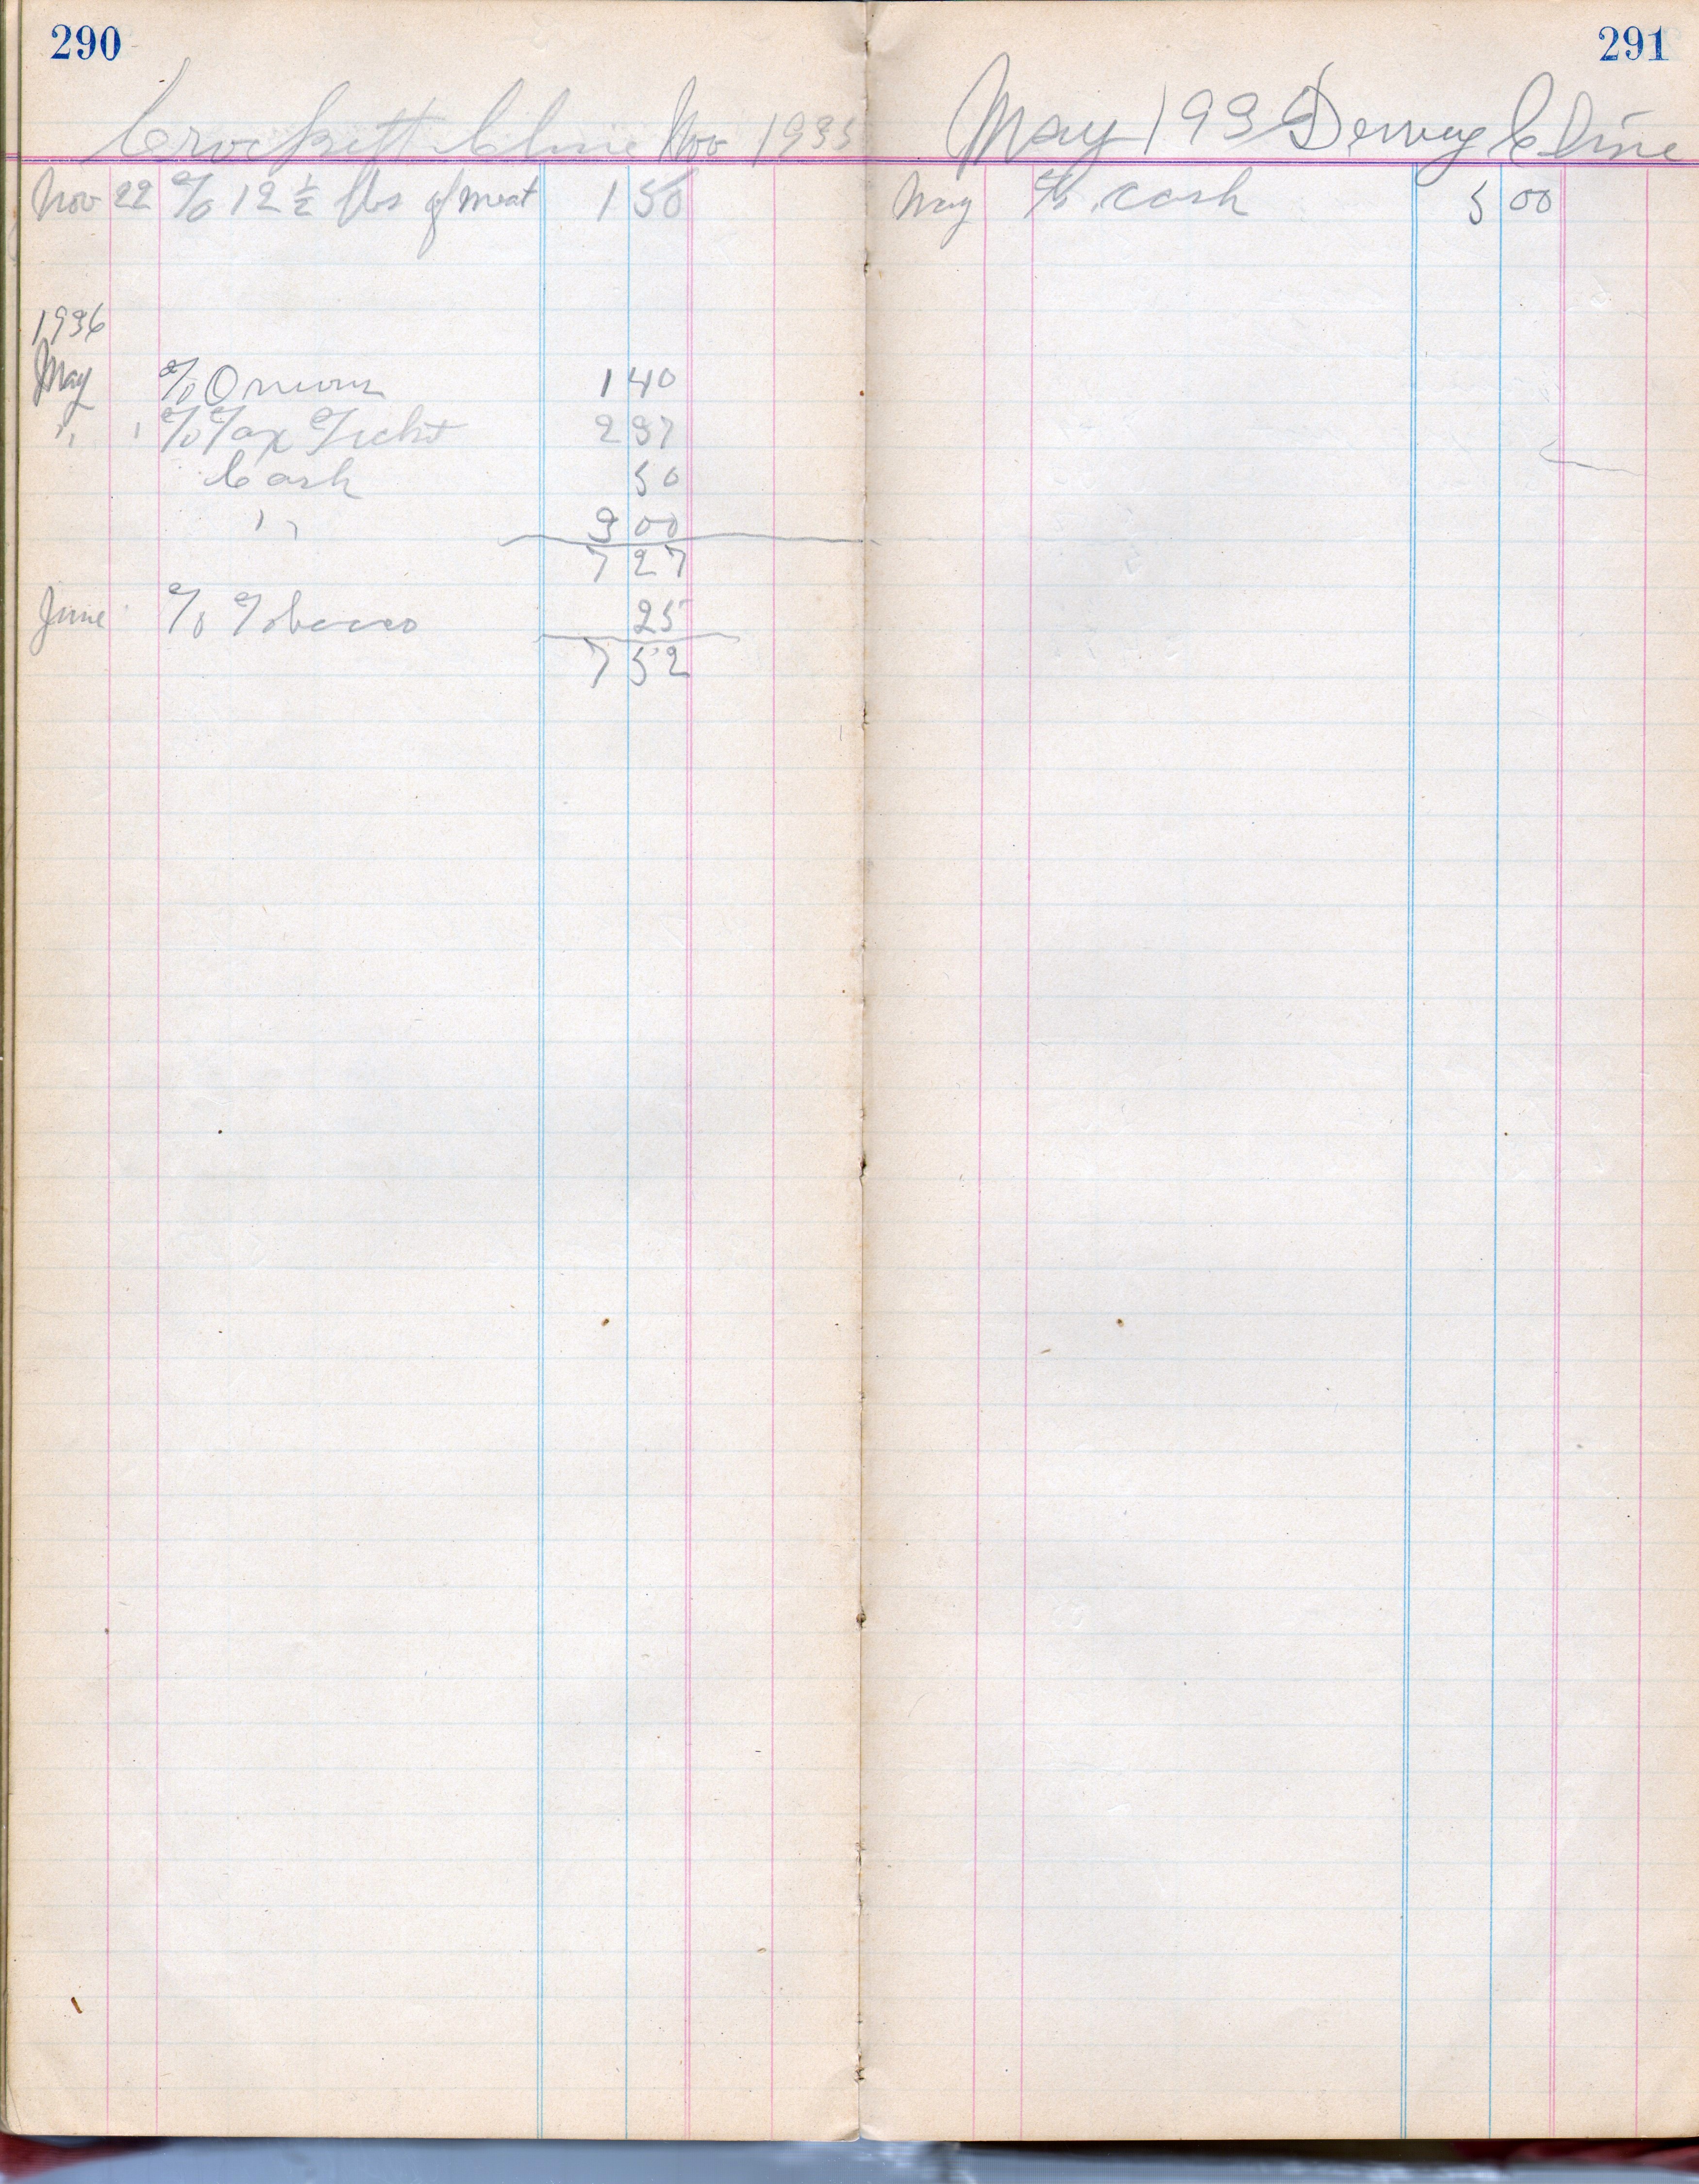 290
Crockett Cline Nov 1935
Nov 22 To 12 ½ lbs of meat 1 50
1936
May To Onions 1 40
" " To Tax Ticket 2 37
Cash 50
" 3 00
7 27
June To Tobacco 25
7 52
291
May 193 Dewey Cline
May To cash 5 00